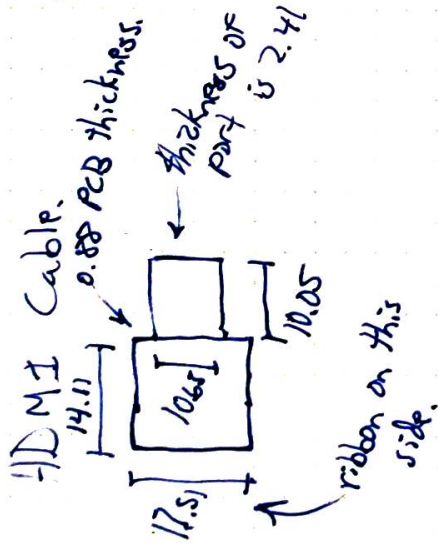 HDMI Cable.
0.88 PCB thickness.
14.11
thickness of
part is 2.41
1065
17.51
10.05
ribbon on this
side.